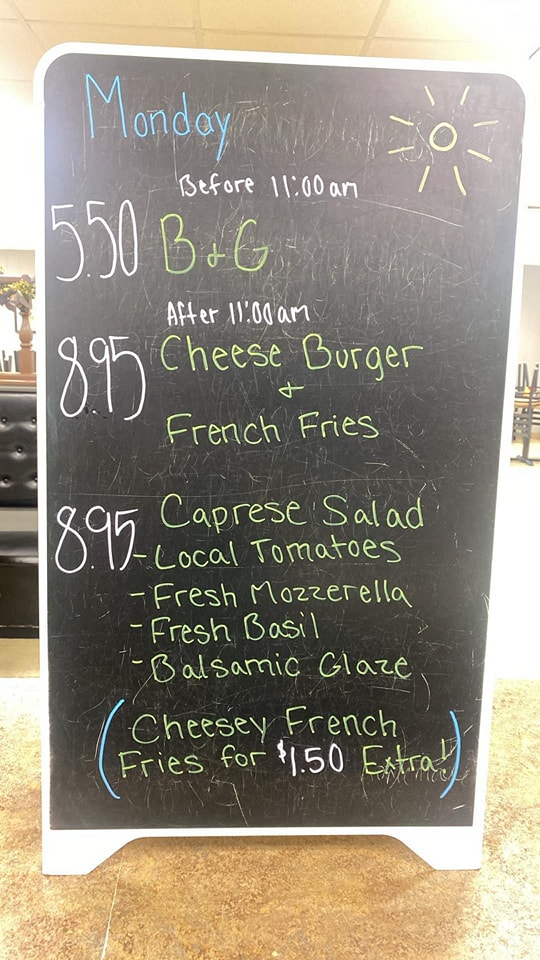 Monday
Before 11:00am
5.50 B & G
After 11:00am
8.95 Cheese Burger
&
French Fries
8.95 Caprese Salad
- Local Tomatoes
- Fresh Mozzerella
- Fresh Basil
- Balsamic Glaze
(Cheesey French
Fries for $1.50 Extra!)